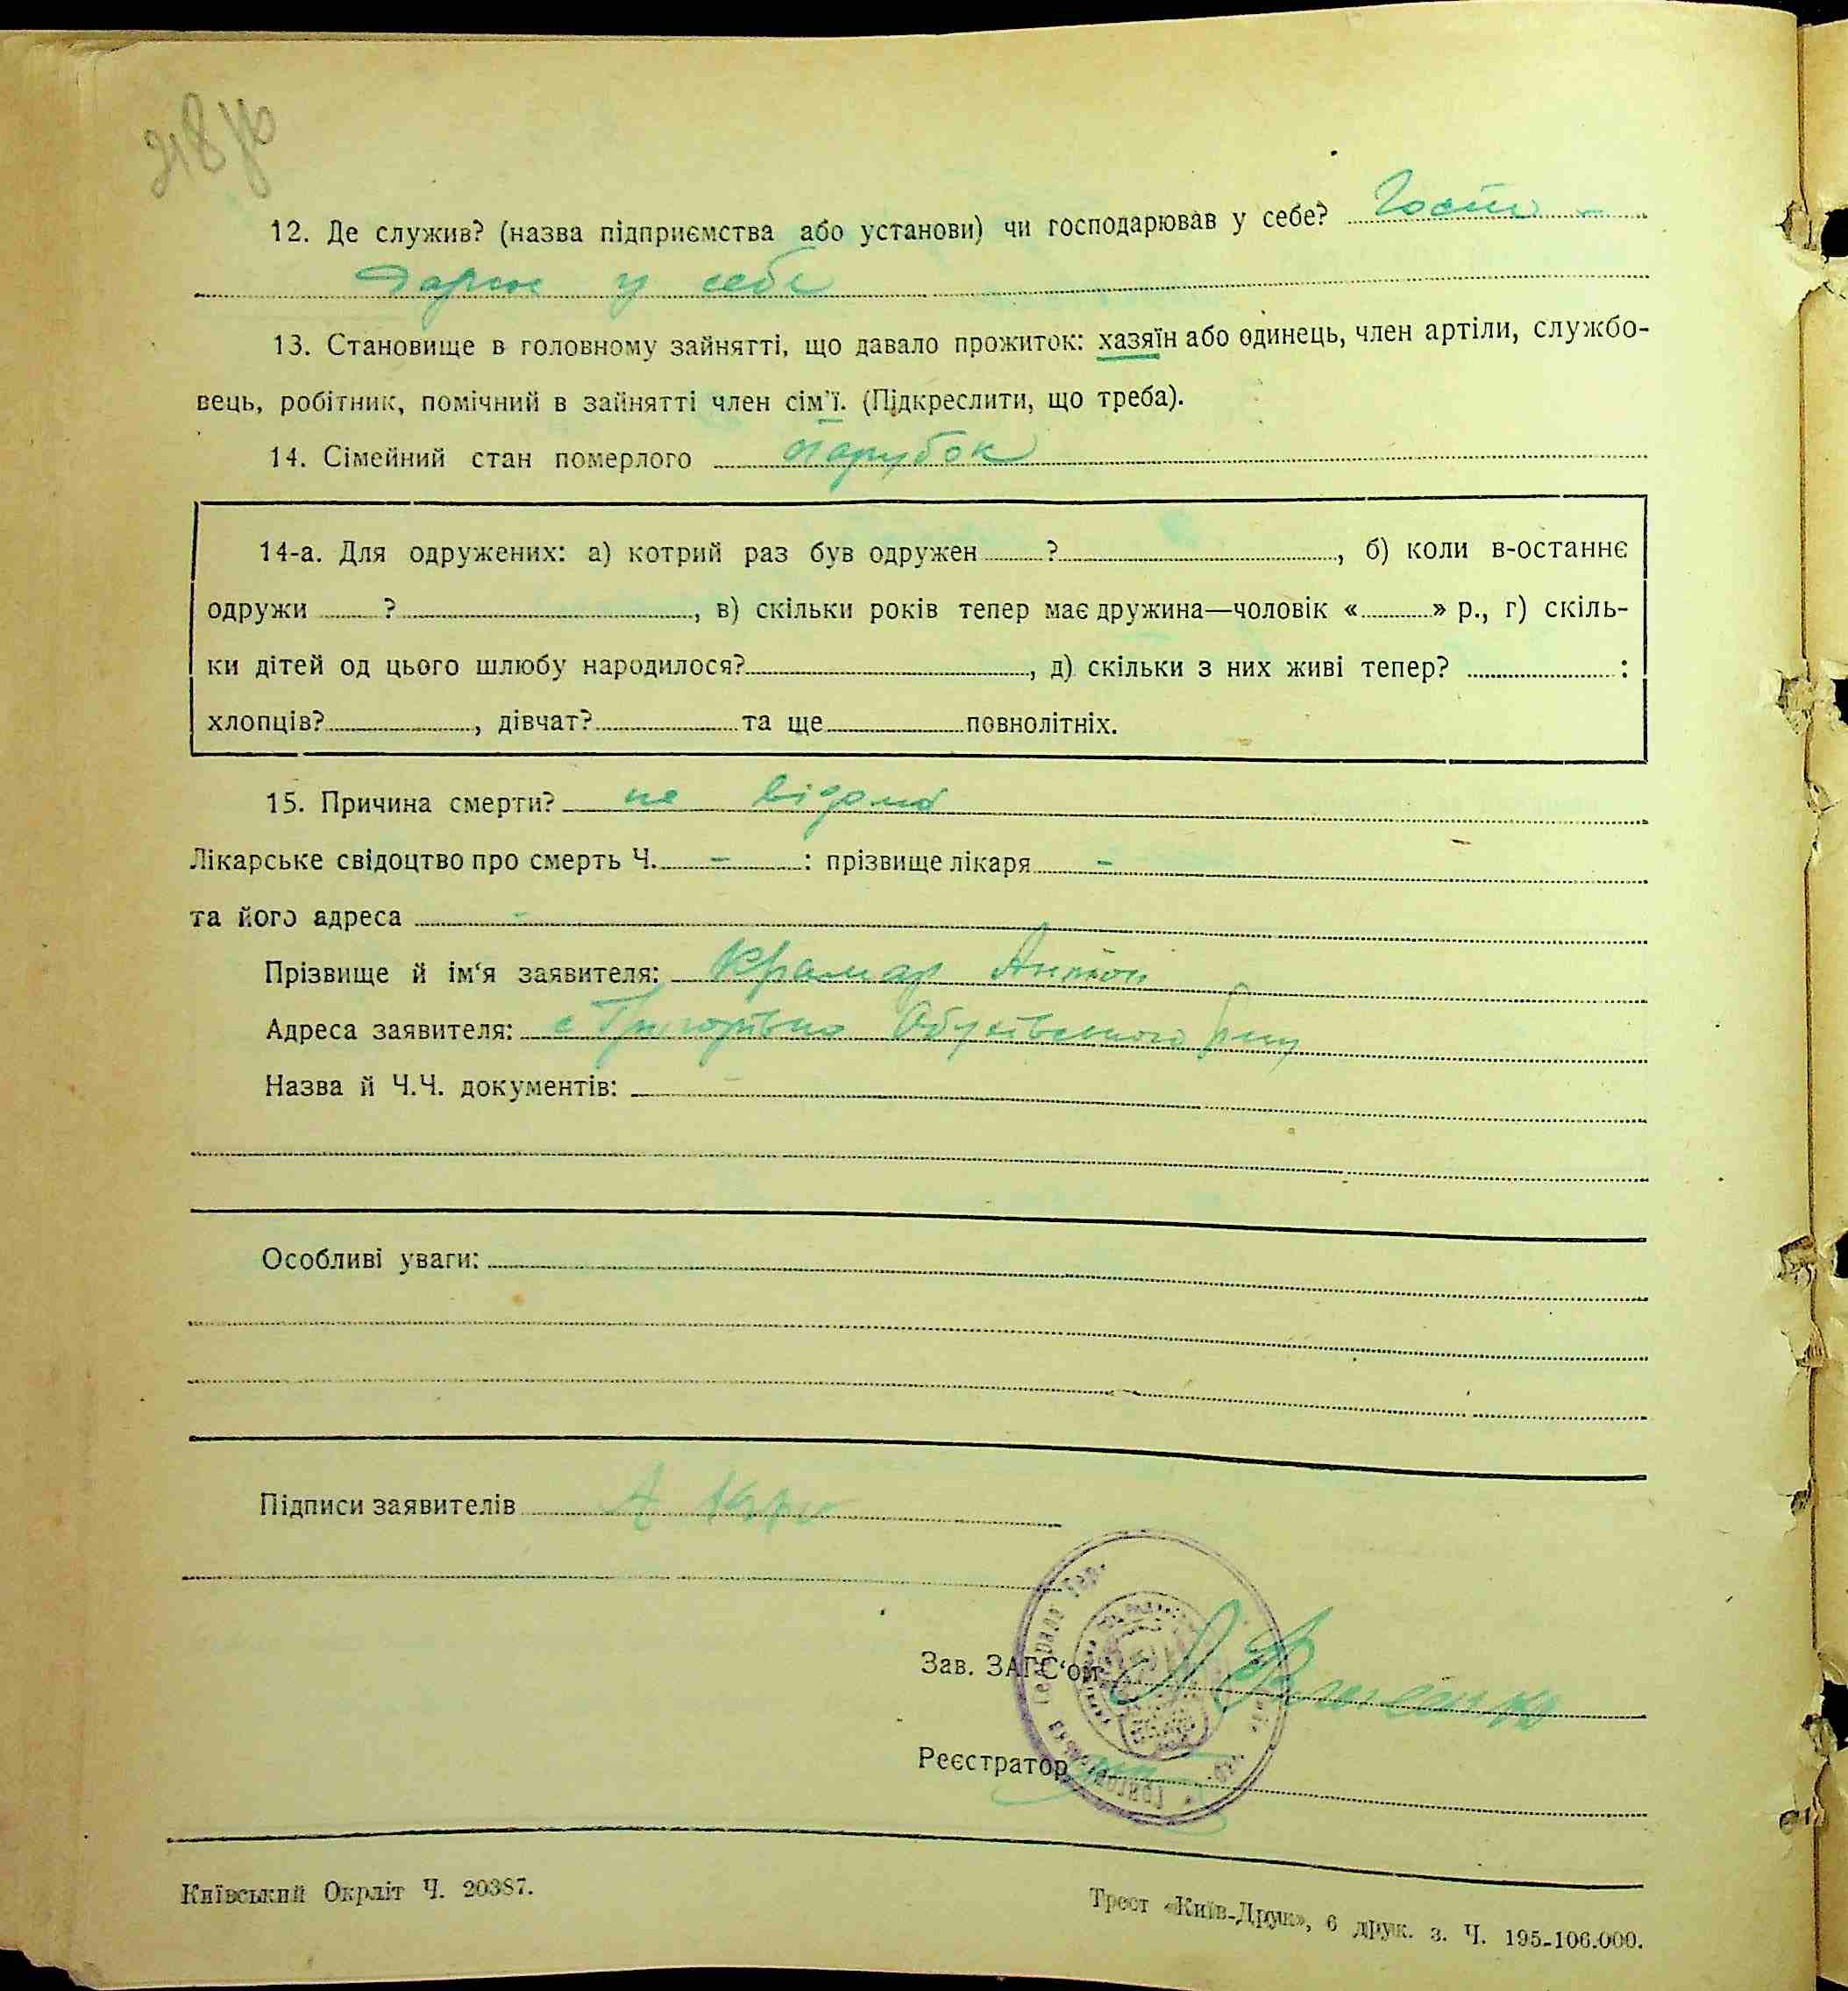 12. Де служив? (назва підприємства або установи) чи господарював у себе? Госпо-
дарює у себе
13. Становище в головному зайнятті, що давало прожиток: хазяїн або одинець, член артіли, службо-
вець, робітник, помічний в зайнятті член сім'ї. (Підкреслити, що треба).
14. Сімейний стан померлого парубок
14-а. Для одружених: а) котрий раз був одружен ? , б) коли в-останнє
одружи ? , в) скільки років тепер має дружина—чоловік « » р., г) скіль-
ки дітей од цього шлюбу народилося? , д) скільки з них живі тепер? :
хлопців? , дівчат? та ще повнолітніх.
15. Причина смерти? не відома
Лікарське свідоцтво про смерть Ч. - : прізвище лікаря -
та його адреса -
Прізвище й ім'я заявителя: Крамар Антон
Адреса заявителя: с Григорівка Обухівського р-ну
Назва й Ч.Ч. документів:
Особливі уваги:
Підписи заявителів А
Зав. ЗАГС'ом
Реєстратор
Київський Окрліт Ч. 20387.
Трест «Київ-Друк», 6 друк. з. Ч. 195-106.000.